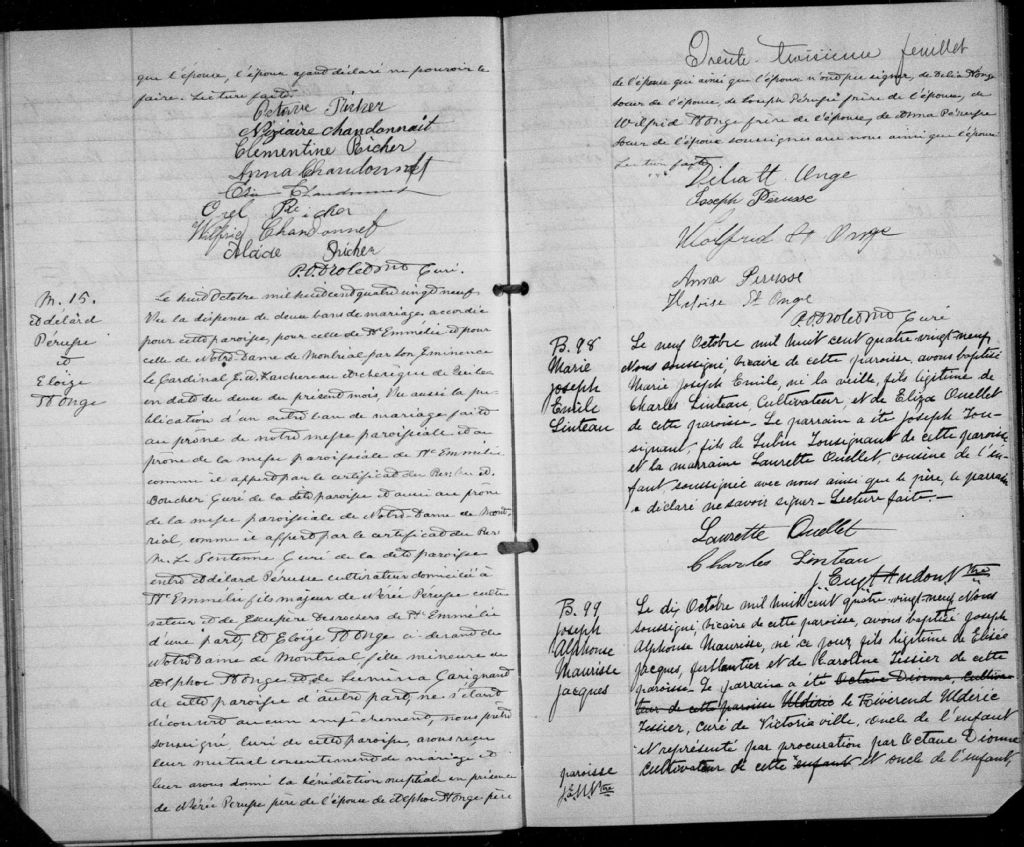 que l'épouse, l'époux ayant déclaré ne pouvoir le
faire. Lecture faite.
Octave Richer
Nizaire chandonnait
Clementine Richer
Anna Chandonnet
Chandonnet
Orel Richer
Wilfrid Chandonnet
Richer
Curé.
M. 15.
Adélard
Pérusse
et
Eloize
St Onge
Le huit Octobre mil huit cent quatre vingt neuf
Vu la dispense de deux bans de mariage accordée
pour cette paroisse, pour celle de Ste Emmélie et pour
celle de Notre Dame de Montreal par Son Eminence
le Cardinal E. A. Taschereau Archevêque de Québec
en date du deux du présent mois, Vu aussi la pu-
blication d'un autre ban de mariage faite
au prône de notre messe paroissiale et au
prône de la messe paroissiale de Ste Emmélie
comme il appert par le certificat du Rev.
Boucher Curé de la dite paroisse et aussi au prône
de la messe paroissiale de Notre-Dame de Mont-
réal, comme il appert par le certificat du Rev
M. L. Sentenne Curé de la dite paroisse
entre Adélard Pérusse cultivateur domicilié à
Ste Emmélie fils majeur de Nérée Perusse culti-
vateur et de Desrochers de Ste Emmélie
d'une part, et Eloize St Onge ci-devant de
Notre Dame de Montreal, fille mineure de
Alphée St Onge et de Garignand
de cette paroisse d'autre part, ne s'étant
découvert aucun empêchement, nous prêtre
soussigné, Curé de cette paroisse, avons reçu
leur mutuel consentement de mariage et
leur avons donné la bénédiction nuptiale en présence
de Nérée Perusse père de l'époux de Alphée St Onge père
Trente troisieme feuillet
de l'épouse qui ainsi que l'époux n'ont pu signer, de Delia St Onge
soeur de l'épouse, de Joseph Pérusse frère de l'époux, de
Wilfrid St Onge frère de l'épouse, de Anna Pérusse
soeur de l'époux soussignés avec nous ainsi que l'épouse
Lecture faite
Delia St. Onge
Joseph Perusse
Wolfrid St Onge
Anna Perusse
Heloise St Onge
Curé
B. 98
Marie
Joseph
Emile
Linteau
Le neuf Octobre mil huit cent quatre vingt-neuf,
Nous soussigné, vicaire de cette paroisse, avons baptisé
Marie Joseph Emile, né la veille, fils légitime de
Charles Linteau, Cultivateur, et de Eliza Ouellet
de cette paroisse. Le parrain a été Joseph Tou-
signant, fils de Lubin Tousignant de cette paroisse
et la marraine Laurette Ouellet, cousine de l'en-
fant, soussignée avec nous ainsi que le père, le parrain
a déclaré ne savoir signer. Lecture faite.
Laurette Ouellet
Charles Linteau
J. Eug. Audout Vre
B. 99
Joseph
Alphonse
Maurisse
Jacques
Le dix Octobre mil huit cent quatre-vingt-neuf, Nous
soussigné, vicaire de cette paroisse, avons baptisé Joseph
Alphonse Maurisse, né ce jour, fils légitime de Elisée
Jacques, ferblantier et de Karoline Tissier de cette
paroisse. Le parrain a été Octave Dionne, cultiva-
teur de cette paroisse Uldéric le Révérend Uldéric
Tissier, curé de Victoriaville, oncle de l'enfant
et représenté par procuration par Octave Dionne
cultivateur de cette enfant et oncle de l'enfant,
paroisse